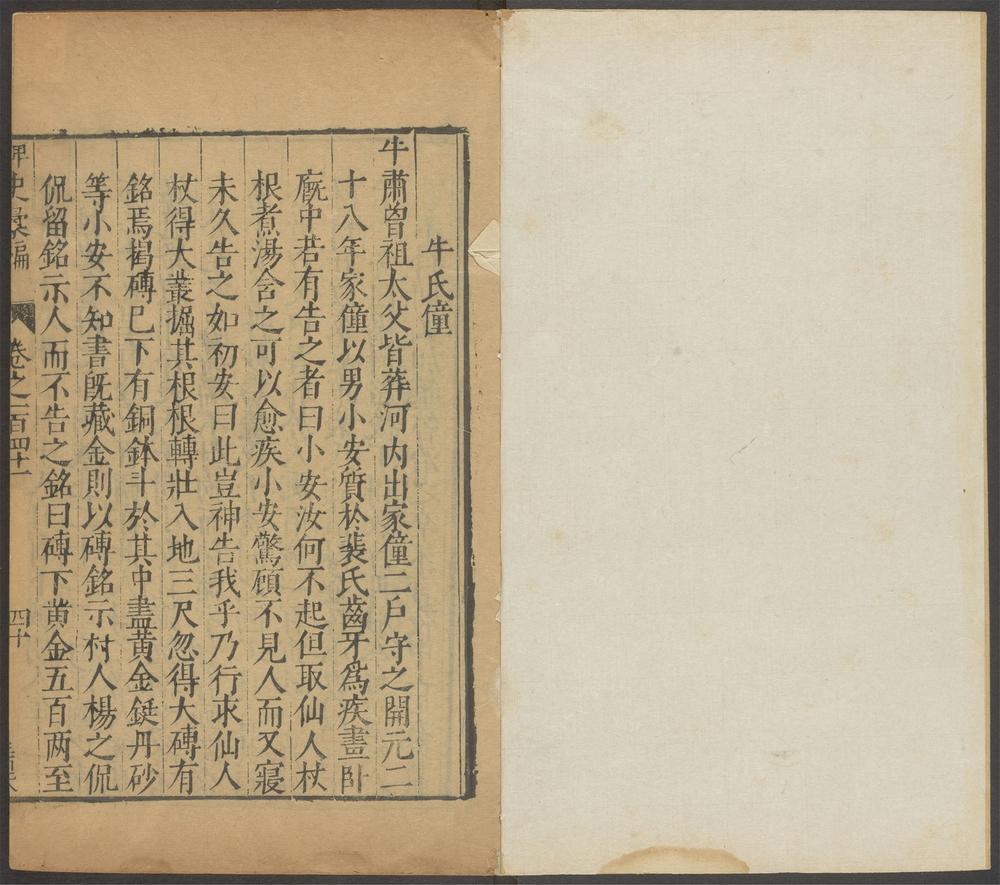 牛氏僮
牛肅曾祖太父皆葬河内出家僮二戶守之開元二
十八年家僮以男小安質於裴氏齒牙爲疾晝卧
廐中若有告之者曰小安汝何不起但取仙人杖
根煮湯含之可以愈疾小安驚顧不見人而又寢
未久告之如初安曰此豈神告我乎乃行求仙人
杖得大叢掘其根根轉壯入地三尺忽得大磚有
銘焉揭磚已下有銅鉢斗於其中盡黄金鋌丹砂
等小安不知書旣藏金則以磚銘示村人楊之侃
侃留銘示人而不告之銘曰磚下黄金五百两至
史彙編
卷之一百四十一
四十